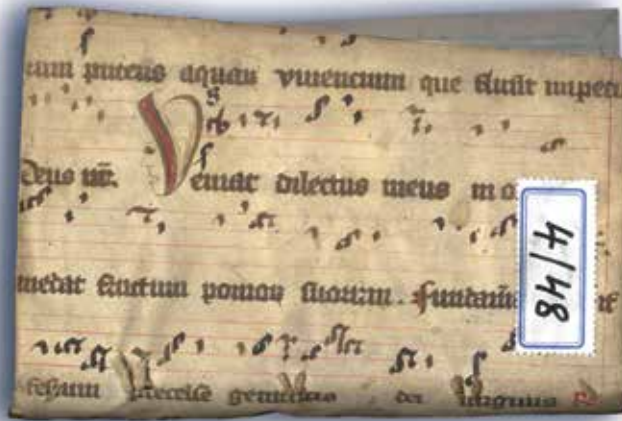 puteus aquaꝝ viuencium que fluūt impetu
deus nr̄. Veniat dilectus meus in o
medat fructum pomoꝝ suorum.
festum precelse genitricis dei virginis
4/48